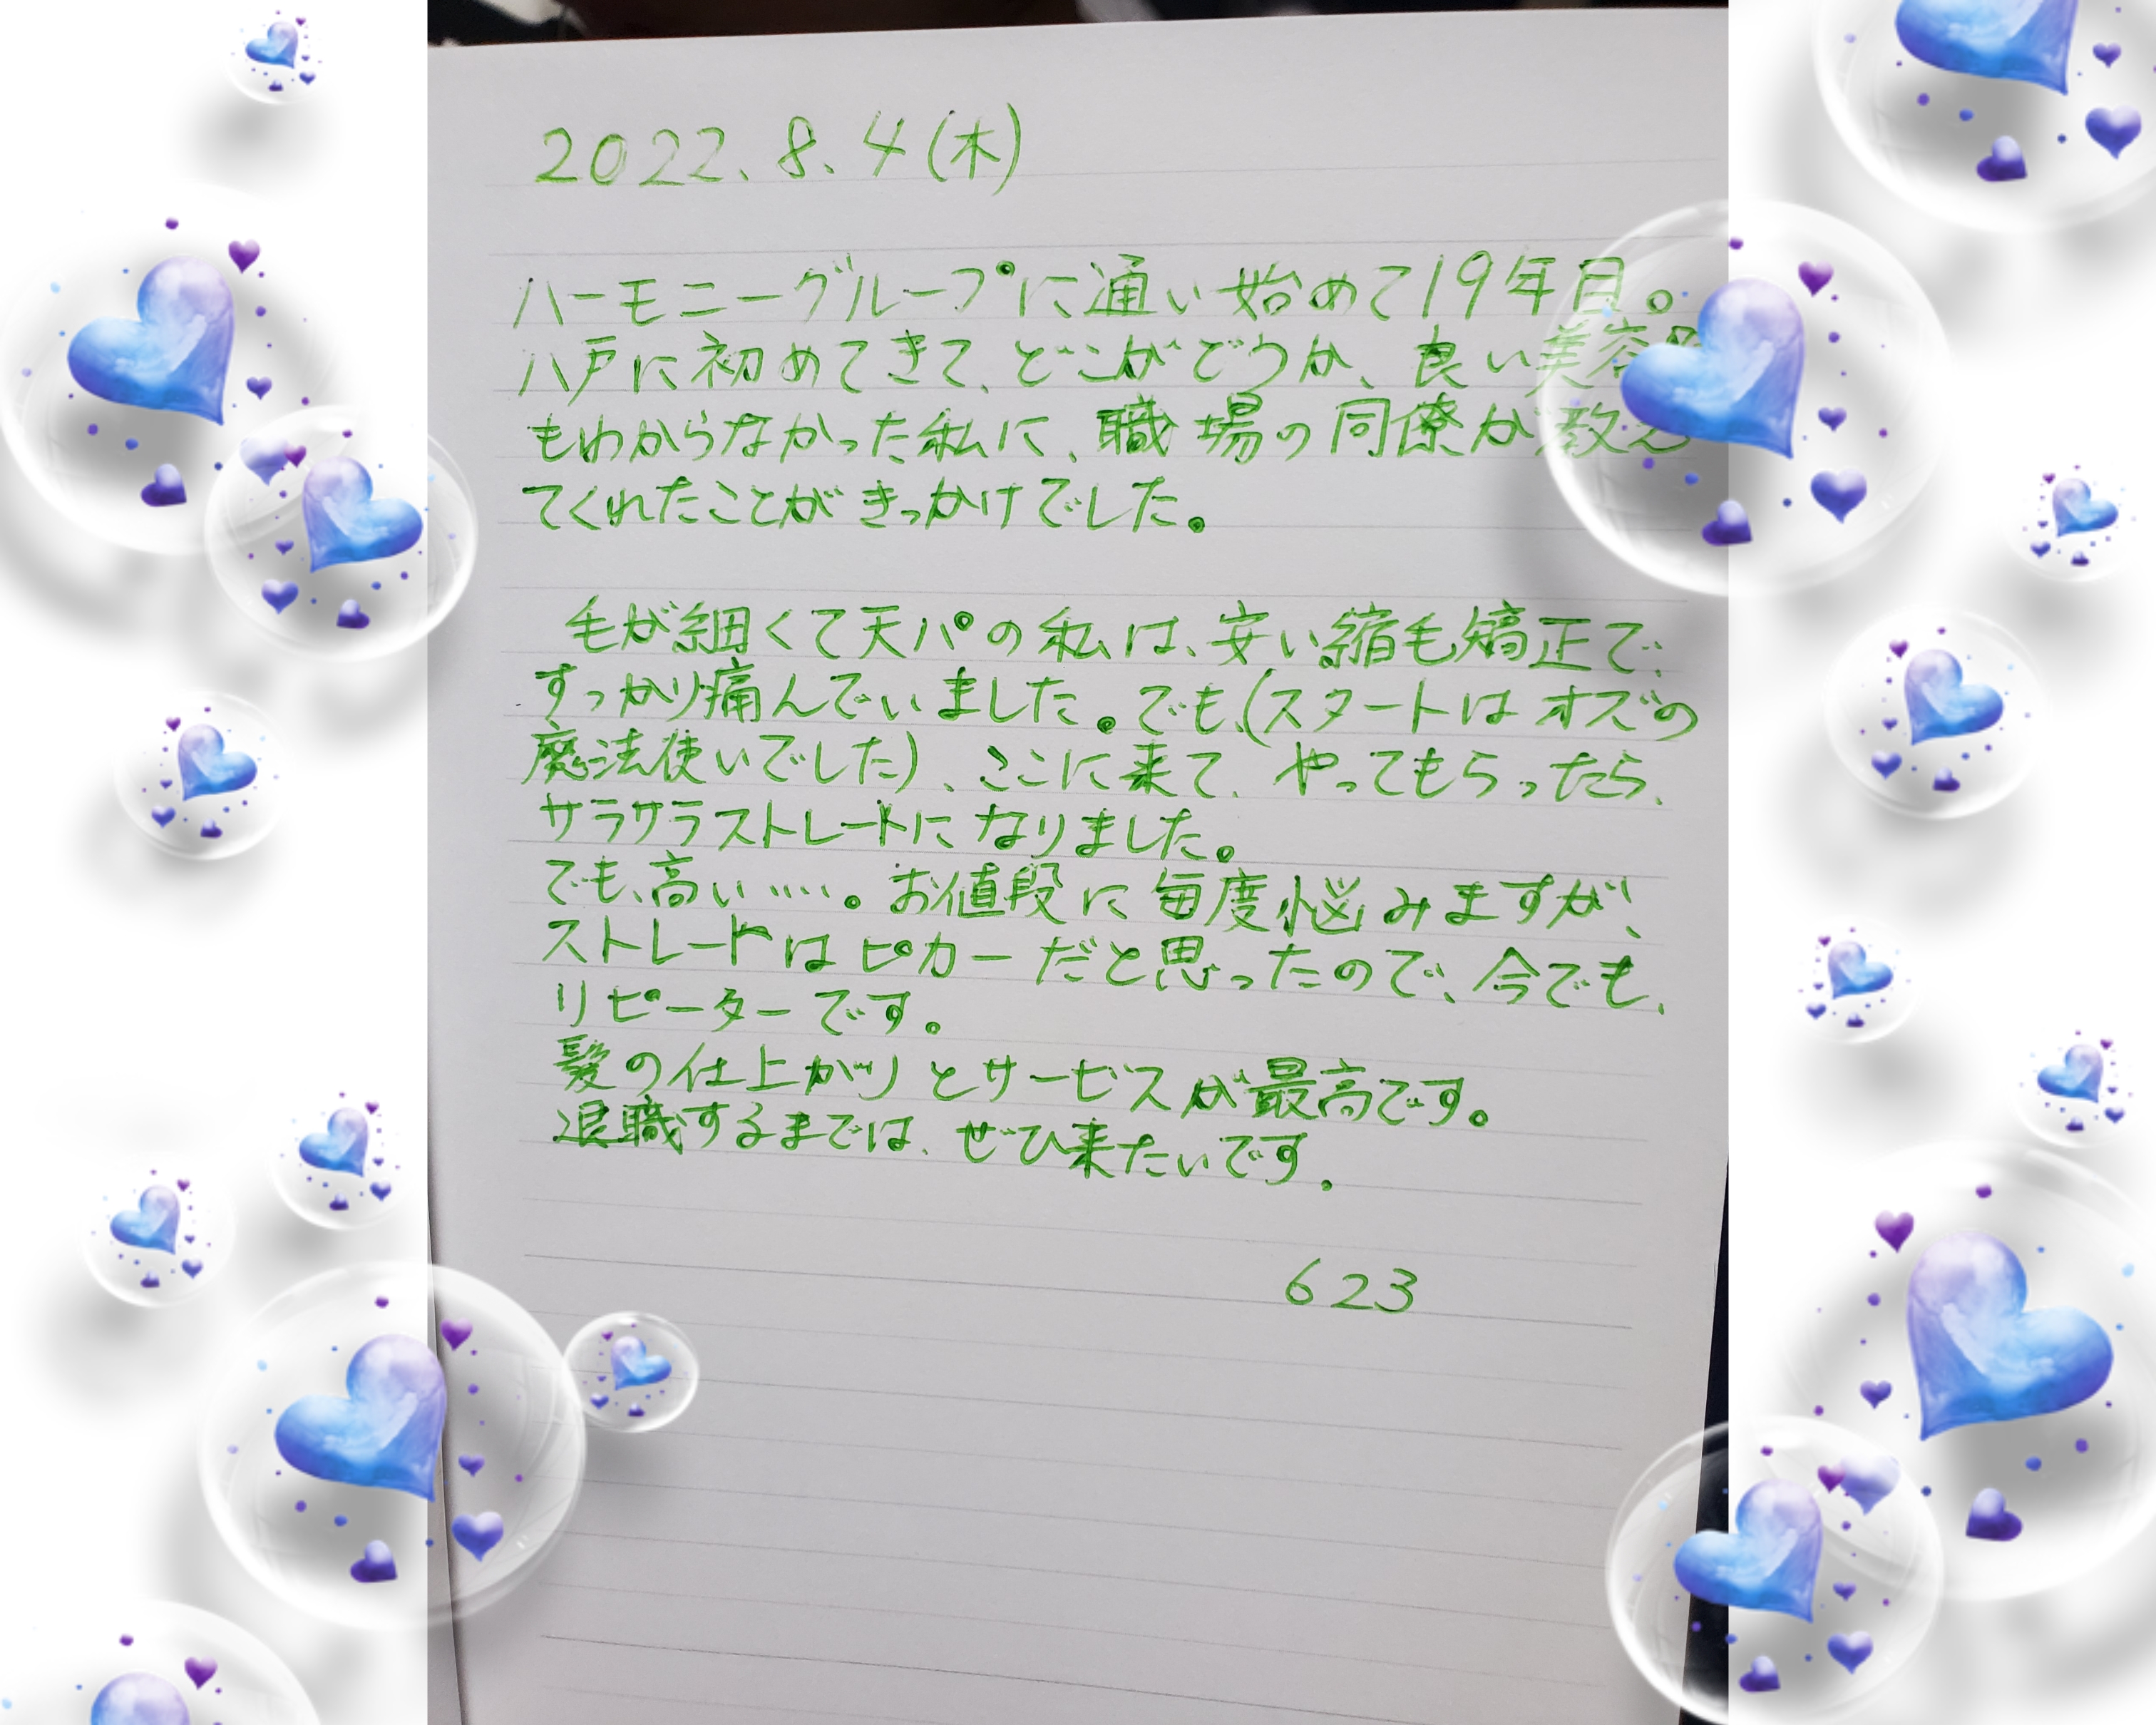 2022.8.4(木)
ハーモニーグループに通い始めて19年目。
八戸に初めてきて、どこがどうか、良い美容院
もわからなかった私に、職場の同僚が教え
てくれたことがきっかけでした。
毛が細くて天パの私は、安い縮毛矯正で、
すっかり痛んでいました。でも、(スタートはオズの
魔法使いでした)、ここに来て、やってもらったら、
サラサラストレートになりました。
でも、高い……。お値段に毎度悩みますが、
ストレートはピカ一だと思ったので、今でも、
リピーターです。
髪の仕上がりとサービスが最高です。
退職するまでは、ぜひ来たいです。
623